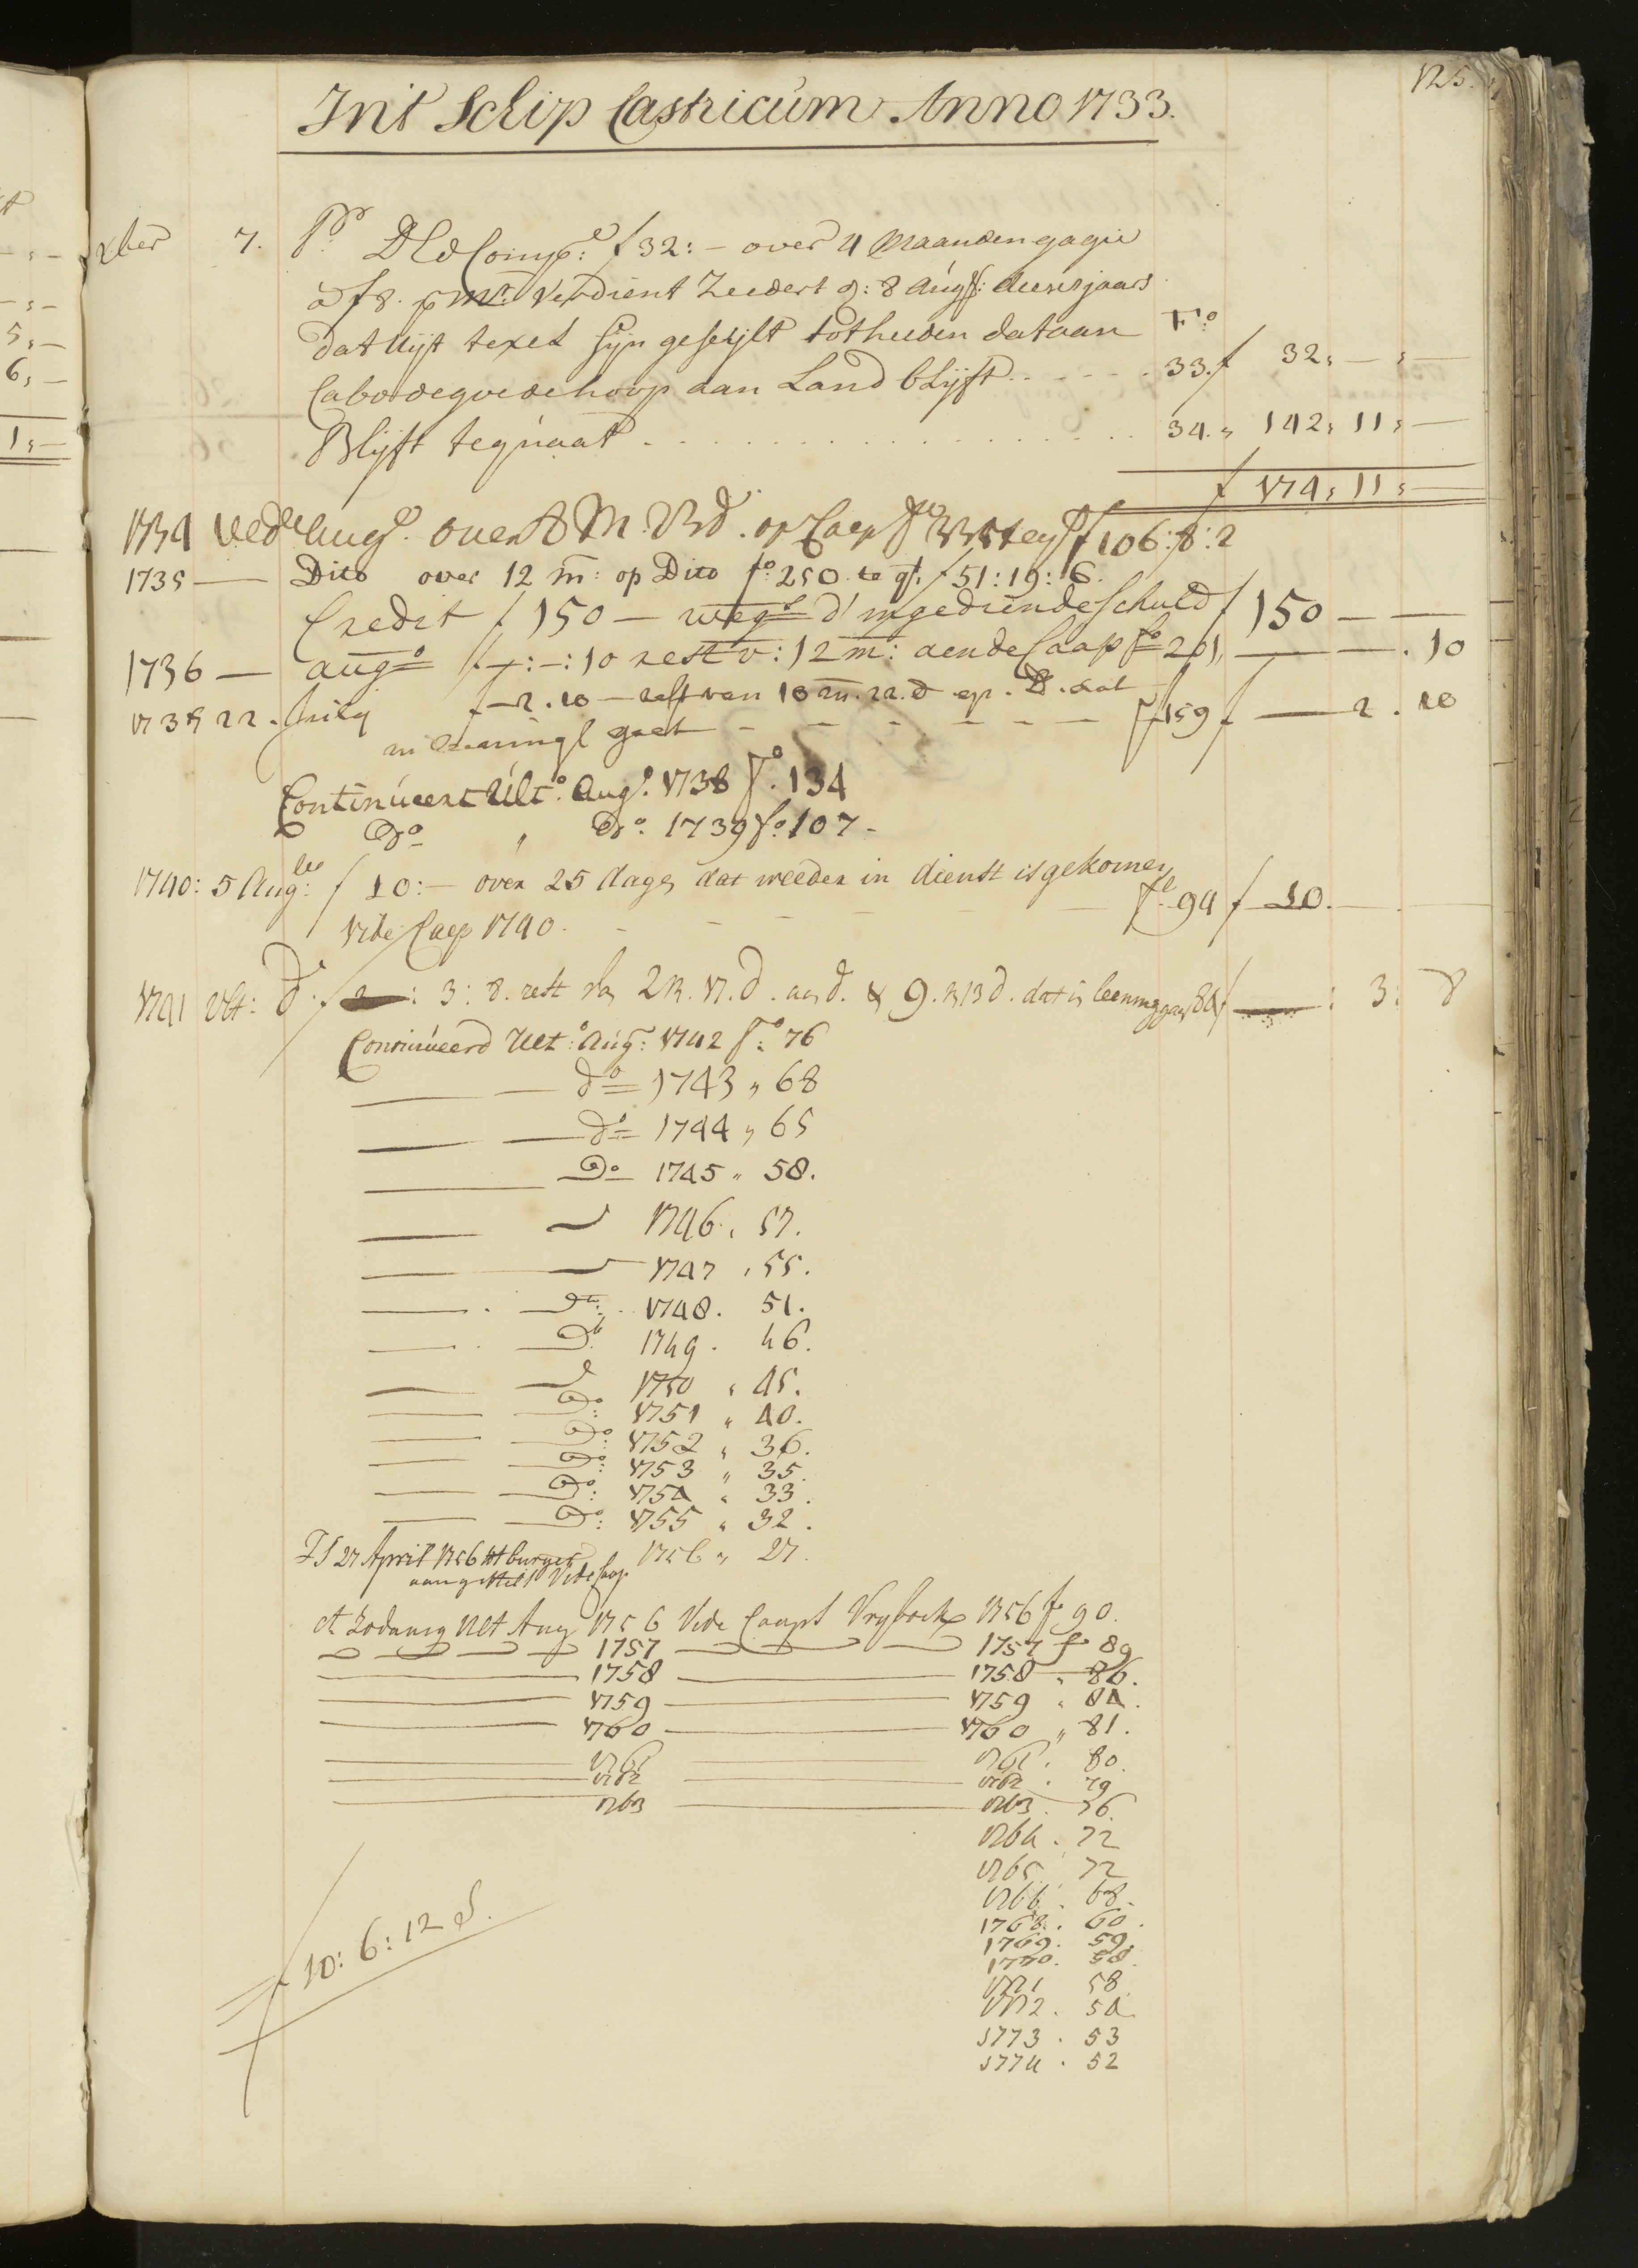 125.
Int Schip Castricum Anno 1733.
xber 7. Pr DEd Comp:e f 32:- over 4 Maanden gagie
a f 8. p mt. verdient Zeedert d: 8 Augs: deeses jaars
dat uijt texel sijn geseijlt tot heeden dat aan Fo
Cabo de goede hoop aan Land blijft . . . . . 33. f 32, - , -
Blijft te quaat . . . . . . . . . . 34. „ 142, 11, -
f 174, 11, -
1734 Augo. over M op Caep fo f 106:8:2
1735 — Dito over 12 m: op Dito fo: 250. te qt. f 51:19:6.
Credit f 150 — weg d' ingediende schuld f 150 — —
1736 — augo f -:-:10 rest v: 12 m: aen de Caap fo 201, — — . 10
22. f - 2. 10 - van 10 m. 22. d op. dat
in gaet - - - - - - fo 159 f — 2. 10
Continueert Ulto: Augo. 1738 fo. 134
Do „ Do. 1739 fo. 107 -
1740: 5 Aug: f 10:- over 25 dage, dat weeder in dienst is gekomen
Vide Caep 1740. - - - - - fo. 94 f 10. — —
1741 Ult: do. f : 3: 8. rest 2 M. 17. d. 9. M 13 d. dat is leening 84 f — : 3: 8
Continueerd Ult:o Aug: 1742 fo: 76
— — do 1743 „ 68
— — do 1744 „ 65
— — Do 1745 „ 58.
— — 1746 „ 57.
— — 1747 „ 55.
— — Do: 1748. 51.
— — Do. 1749. 46.
— — 1750 „ 45.
— — Do: 1751 „ 40.
— — Do: 1752 „ 36.
— — Do: 1753 „ 35.
— — Do: 1754 „ 33.
— — Do: 1755 „ 32.
IS 27 April 1756 tot burger 1756 „ 27.
aangestelt Vide Caap.
et Zodanig Ult Aug 1756 Vide Caaps Vryboek 1756 fo 90.
1757 — 1757 fo 89
— 1758 — 1758 „ 86.
— 1759 — 1759 „ 84.
— 1760 — 1760 „ 81.
— 1761 — 1761. 80.
— 1762 — 1762. 79
— 1763 — 1763. 76.
1764. 72
1765 72
1766. 68.
1768. 60.
1769. 59.
1770. 58.
1771 58
1772. 54.
1773. 53
1774. 52
f 10: 6: 12 d.